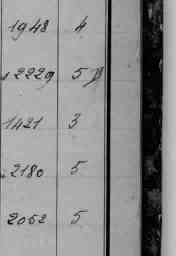 1948 4
2229 5
1421 3
2180 5
2052 5